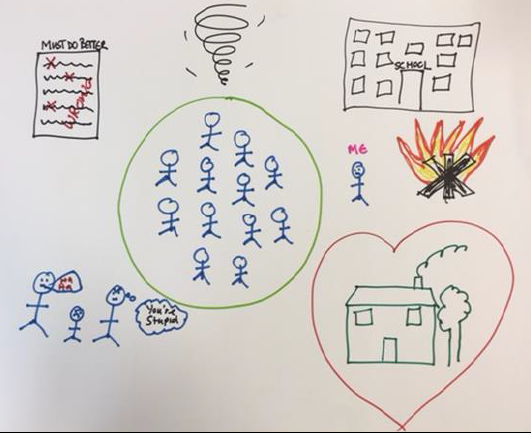 MUST DO BETTER
WRONG
SCHOOL
ME
HA
HA
You're
Stupid